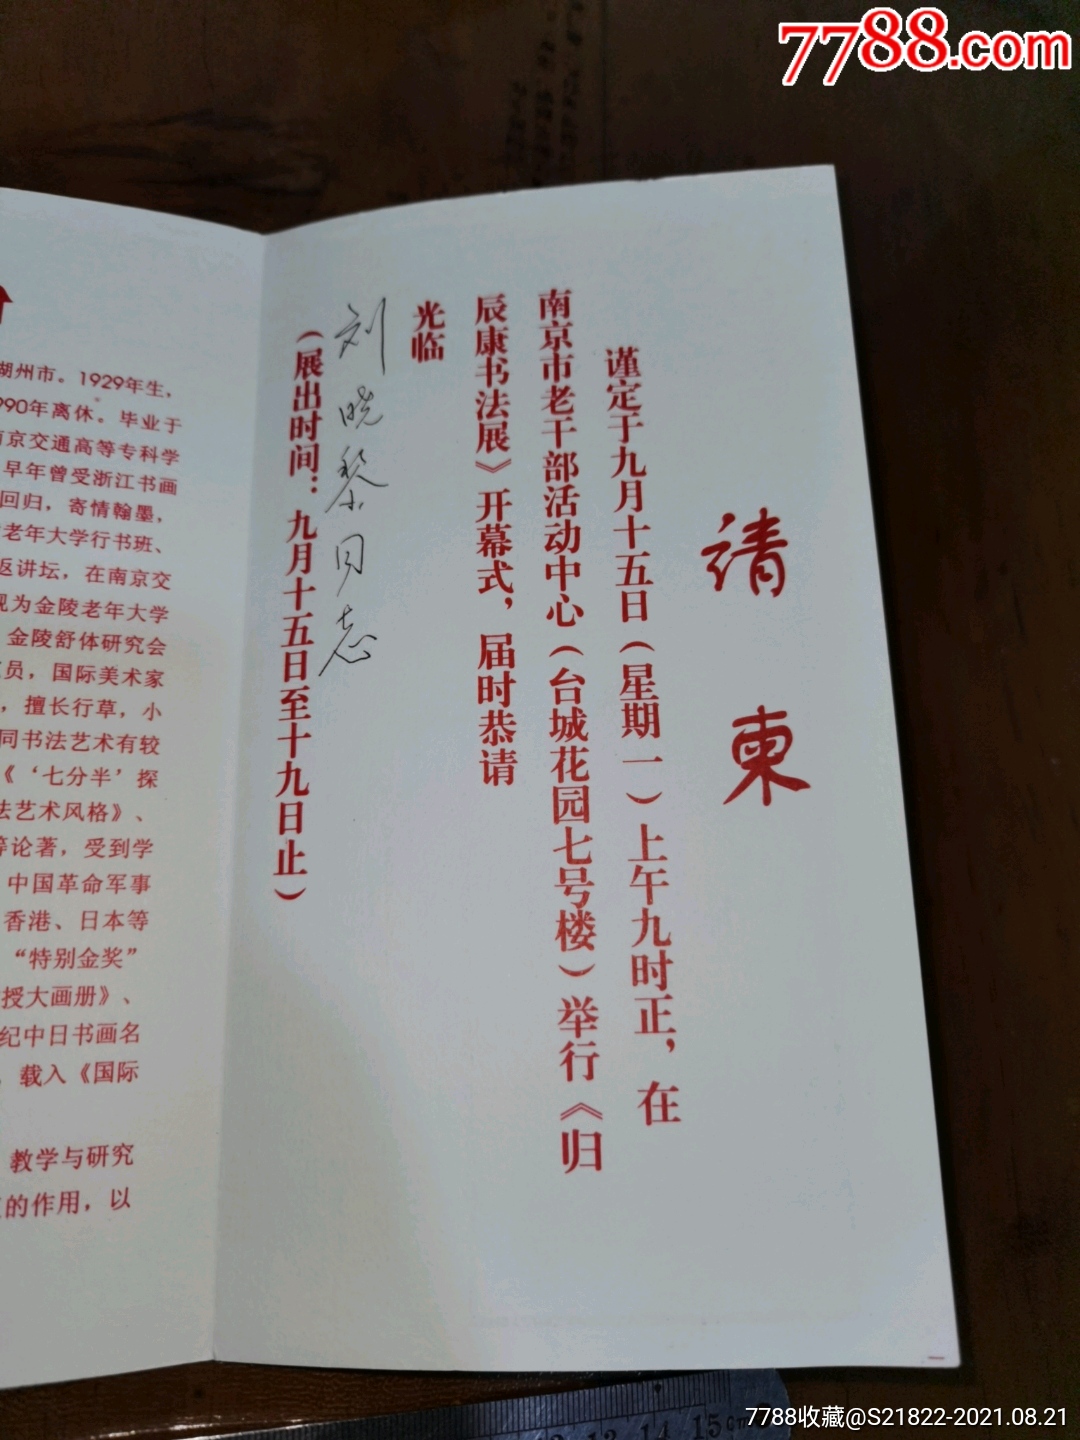 7788.com
请柬
谨定于九月十五日（星期一）上午九时正，在
南京市老干部活动中心（台城花园七号楼）举行《归
辰康书法展》开幕式，届时恭请
光临
刘晓黎同志
（展出时间：九月十五日至十九日止）
湖州市。1929年生，
990年离休。毕业于
南京交通高等专科学
早年曾受浙江书画
回归，寄情翰墨，
老年大学行书班、
返讲坛，在南京交
现为金陵老年大学
金陵舒体研究会
员，国际美术家
，擅长行草，小
同书法艺术有较
《‘七分半’探
法艺术风格》、
等论著，受到学
中国革命军事
香港、日本等
“特别金奖”
授大画册》、
纪中日书画名
，载入《国际
教学与研究
的作用，以
13 14 15cm
7788收藏@S21822-2021.08.21